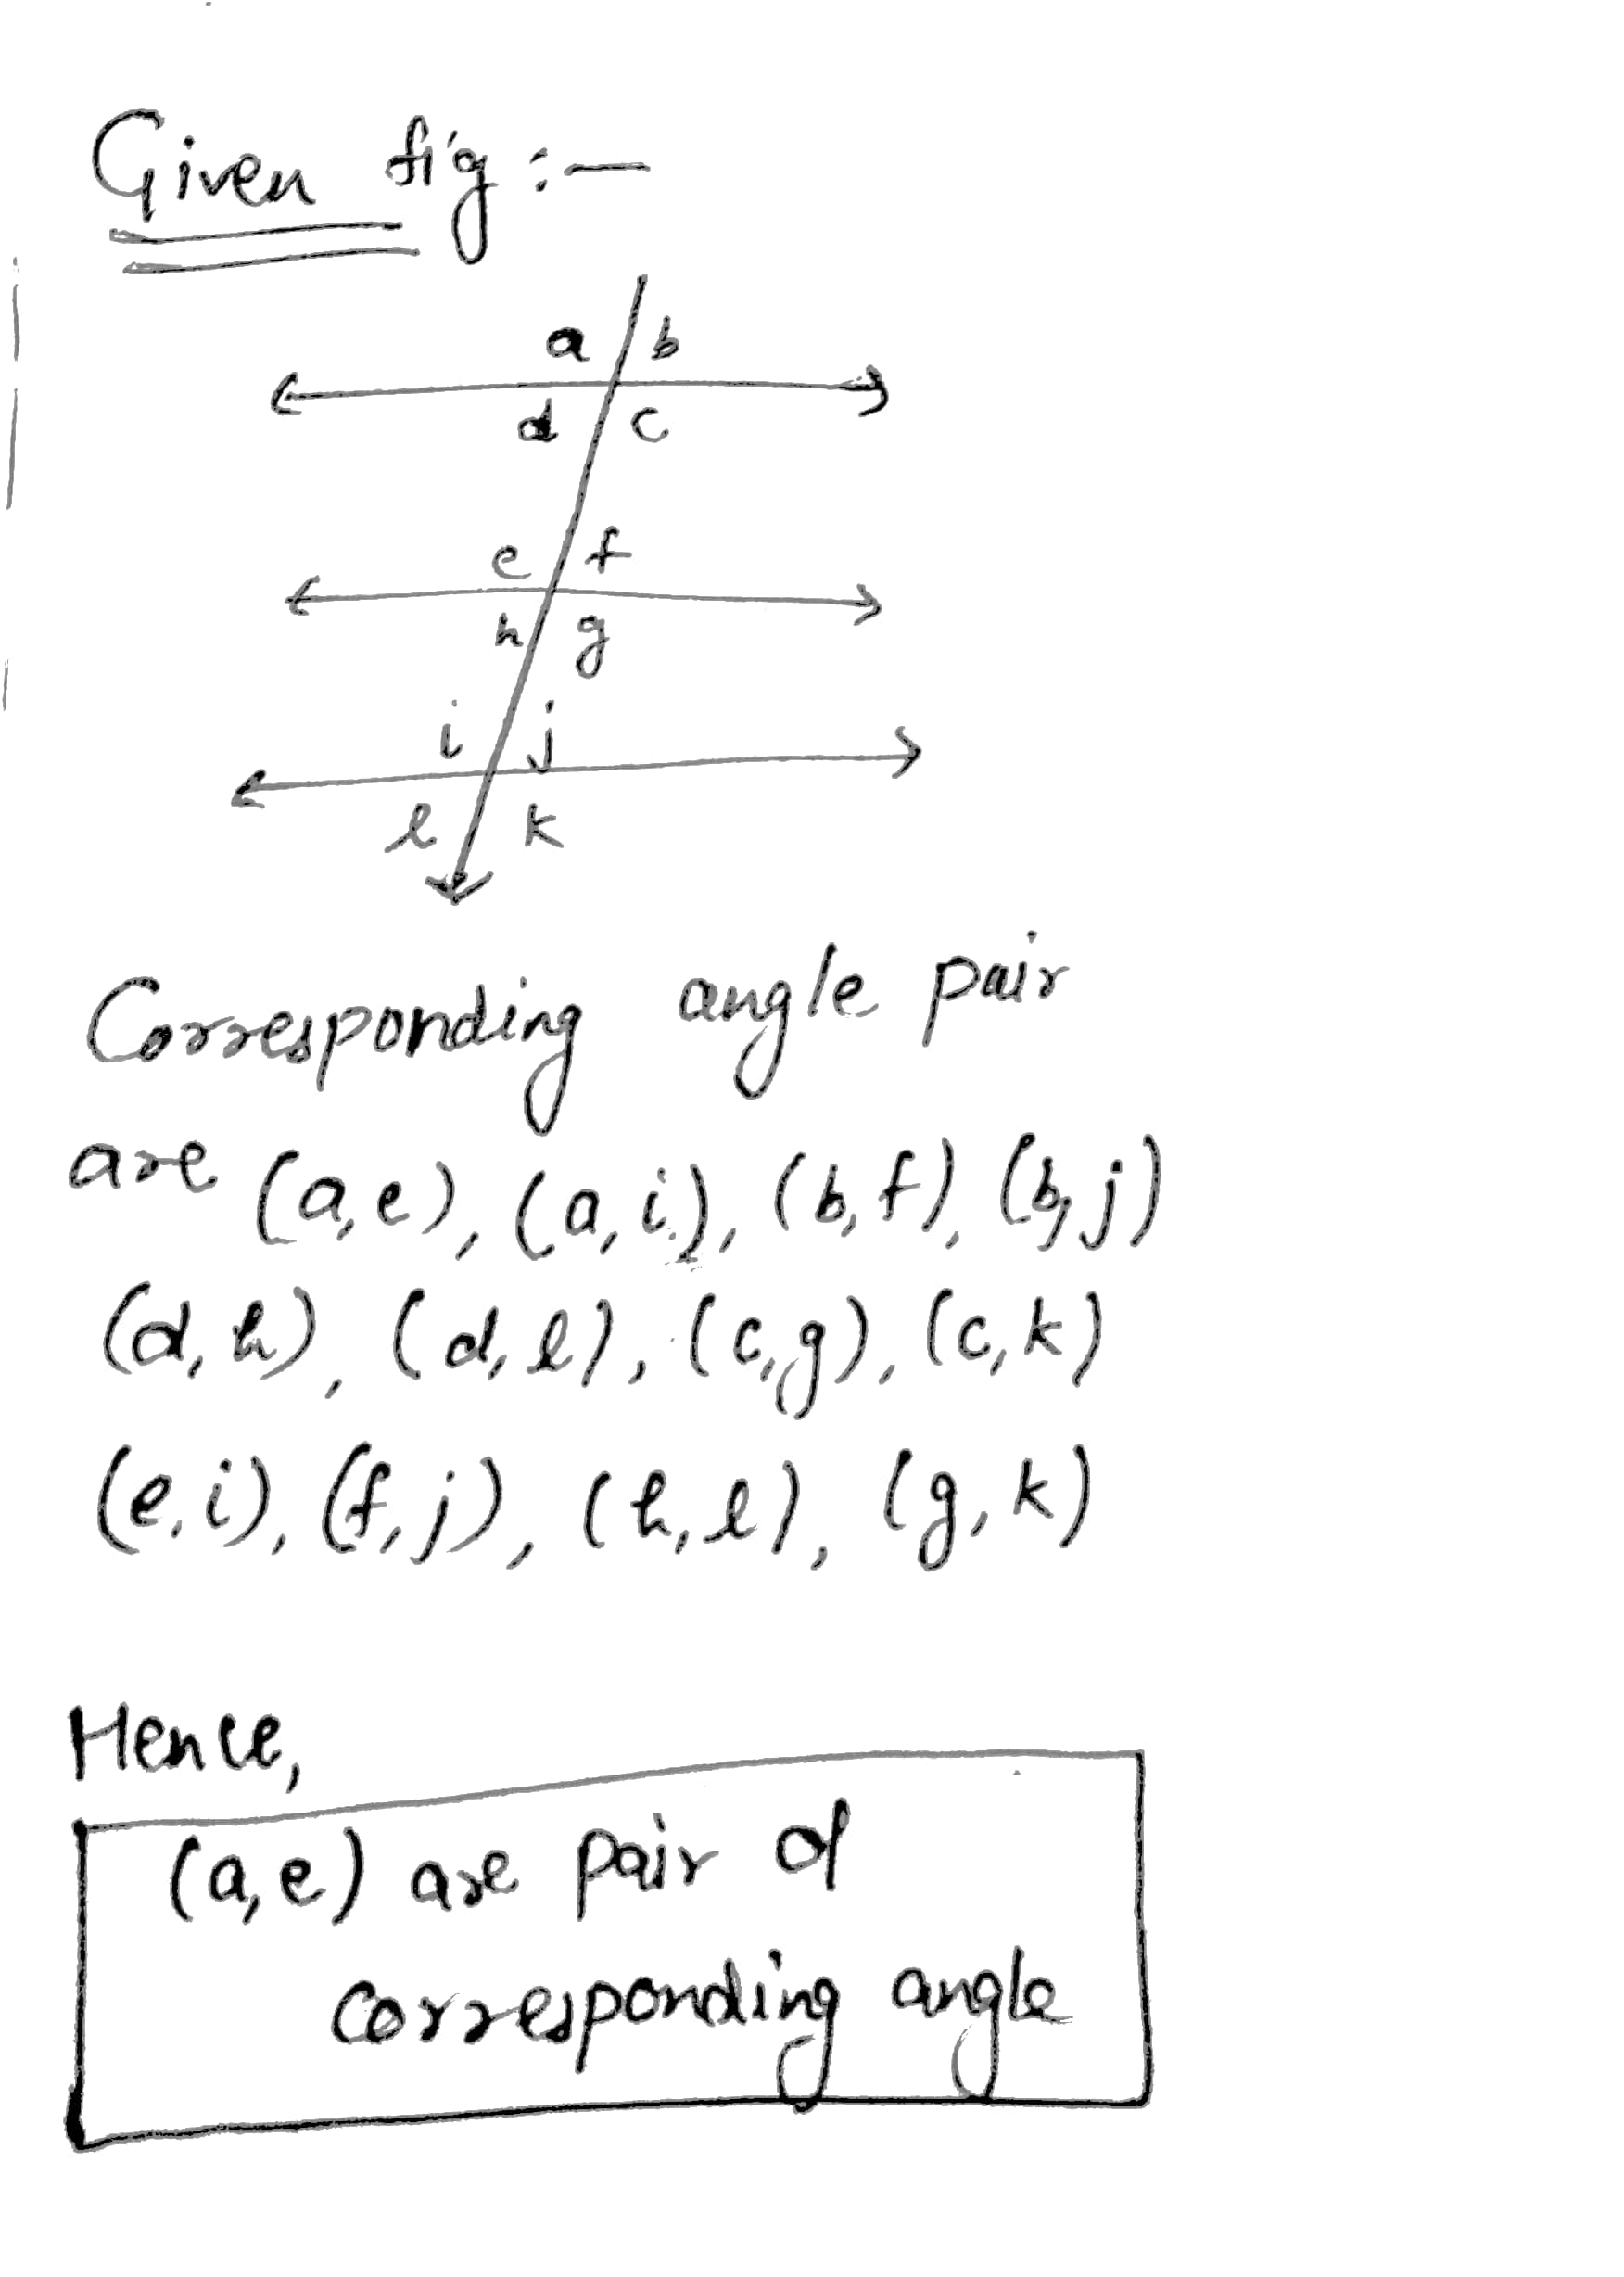 Given fig :-
a b
d c
e f
h g
i j
l k
Corresponding angle pair
are (a,e), (a,i), (b,f), (b,j)
(d,h), (d,l), (c,g), (c,k)
(e,i), (f,j), (h,l), (g,k)
Hence,
(a,e) are pair of
corresponding angle